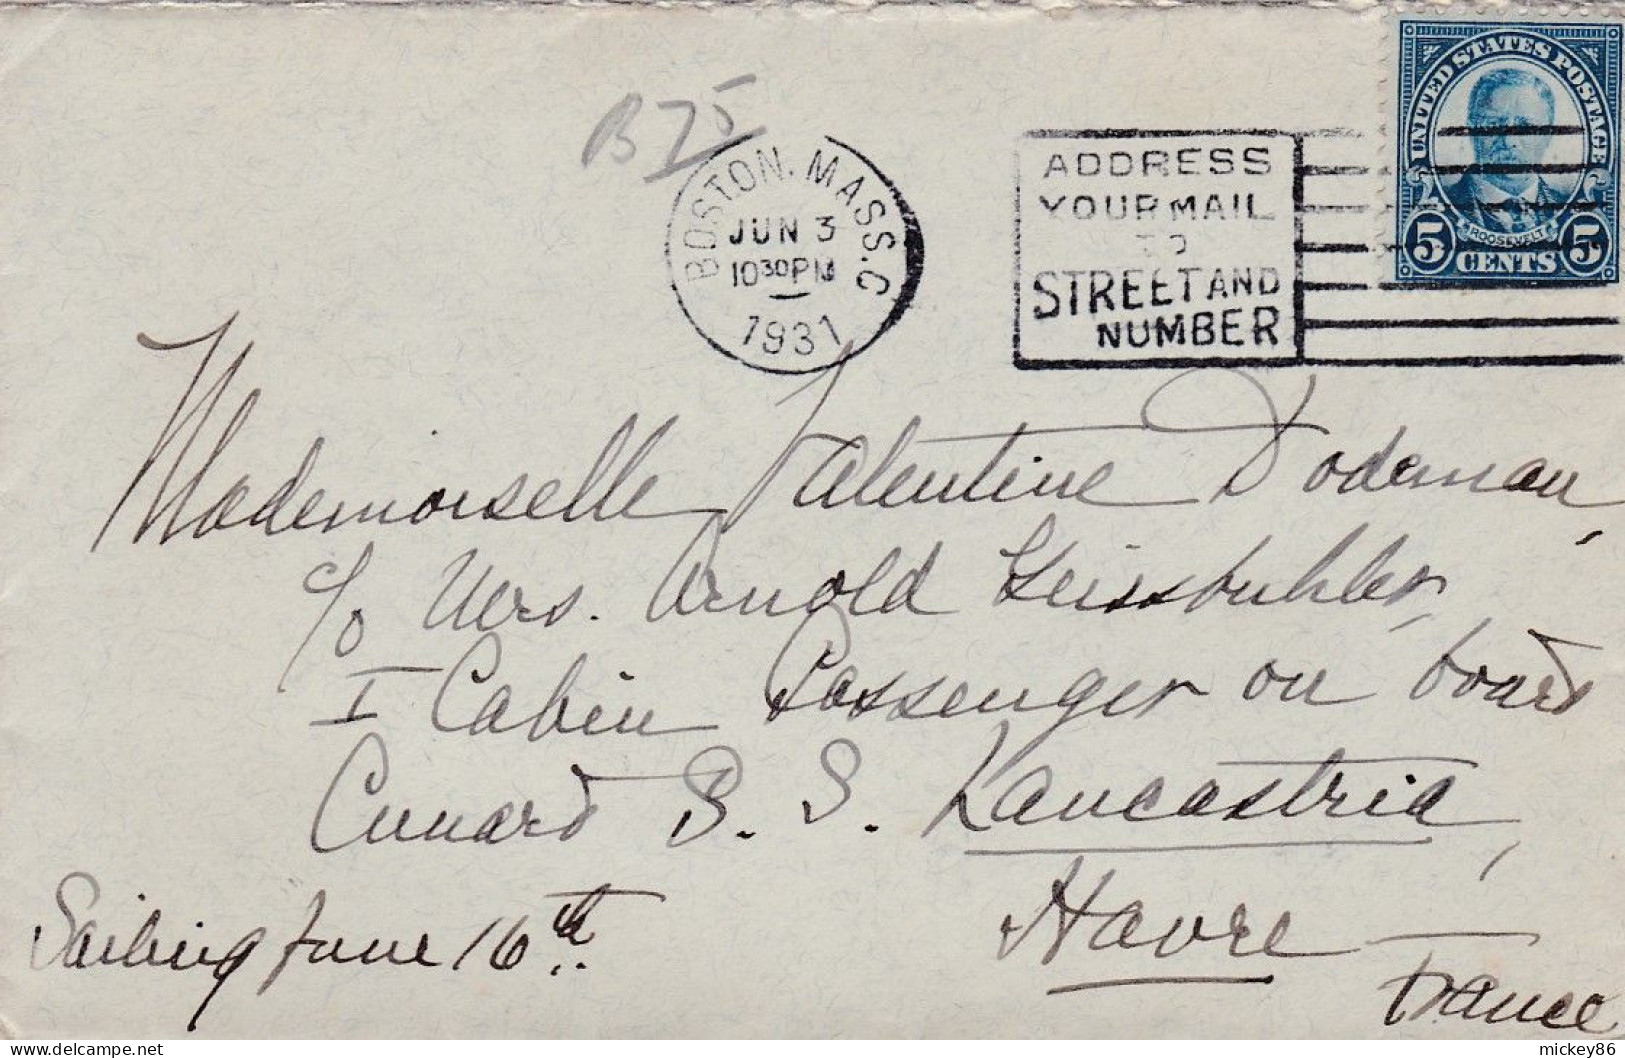 B75
BOSTON, MASS. C
JUN 3
10 30 PM
1931
ADDRESS
YOUR MAIL
TO
STREET AND
NUMBER
UNITED STATES POSTAGE
ROOSEVELT
5 CENTS 5
Mademoiselle Valentine Dodeman,
c/o Mrs. Arnold Geissbuhler,
I Cabin Passenger on board
Cunard S. S. Lancastria,
Havre
Sailing June 16th.
France
mickey86